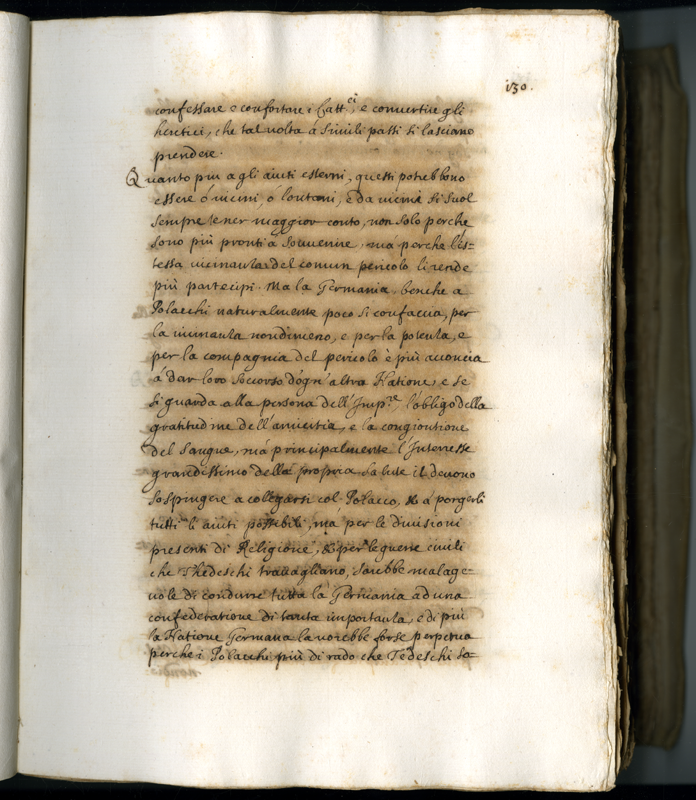 130.
confessare e confortare i Catt.ci, e convertire gli
heretici, che tal volta á simili passi si lasciano
prendere.
Quanto piu agli aiuti esterni, questi potrebbono
essere ó vicini, ó lontani, e da vicini si suol
sempre tener maggior conto, non solo perche
sono piú pronti á souvenire, ma perche l'is=
tessa vicinanza del comun pericolo li rende
piú partecipi. Ma la Germania, benche a
Polacchi naturalmente poco si confaccia, per
la vicinanza nondimeno, e per la potenza, e
per la compagnia del pericolo è piú acconcia
á dar loro soccorso d'ogn'altra Natione, e se
si guarda alla persona dell'Imp.re, l'obligo della
gratitudine dell'amicitia, e la congiontione
del sangue, má principalmente l'Interesse
grandissimo della propria salute il devono
sospingere a collegarsi col Polacco, & á porgerli
tutti li aiuti possibili, ma per le divisioni
presenti di Religione, & per le guerre civili
che Thedeschi travagliano, sarebbe malage=
vole di condurre tutta la Germania ad una
confederatione di tanta importanza, e di piú
la Natione Germana la vorebbe forse perpetua
perche i Polacchi piú di rado che Tedeschi so=